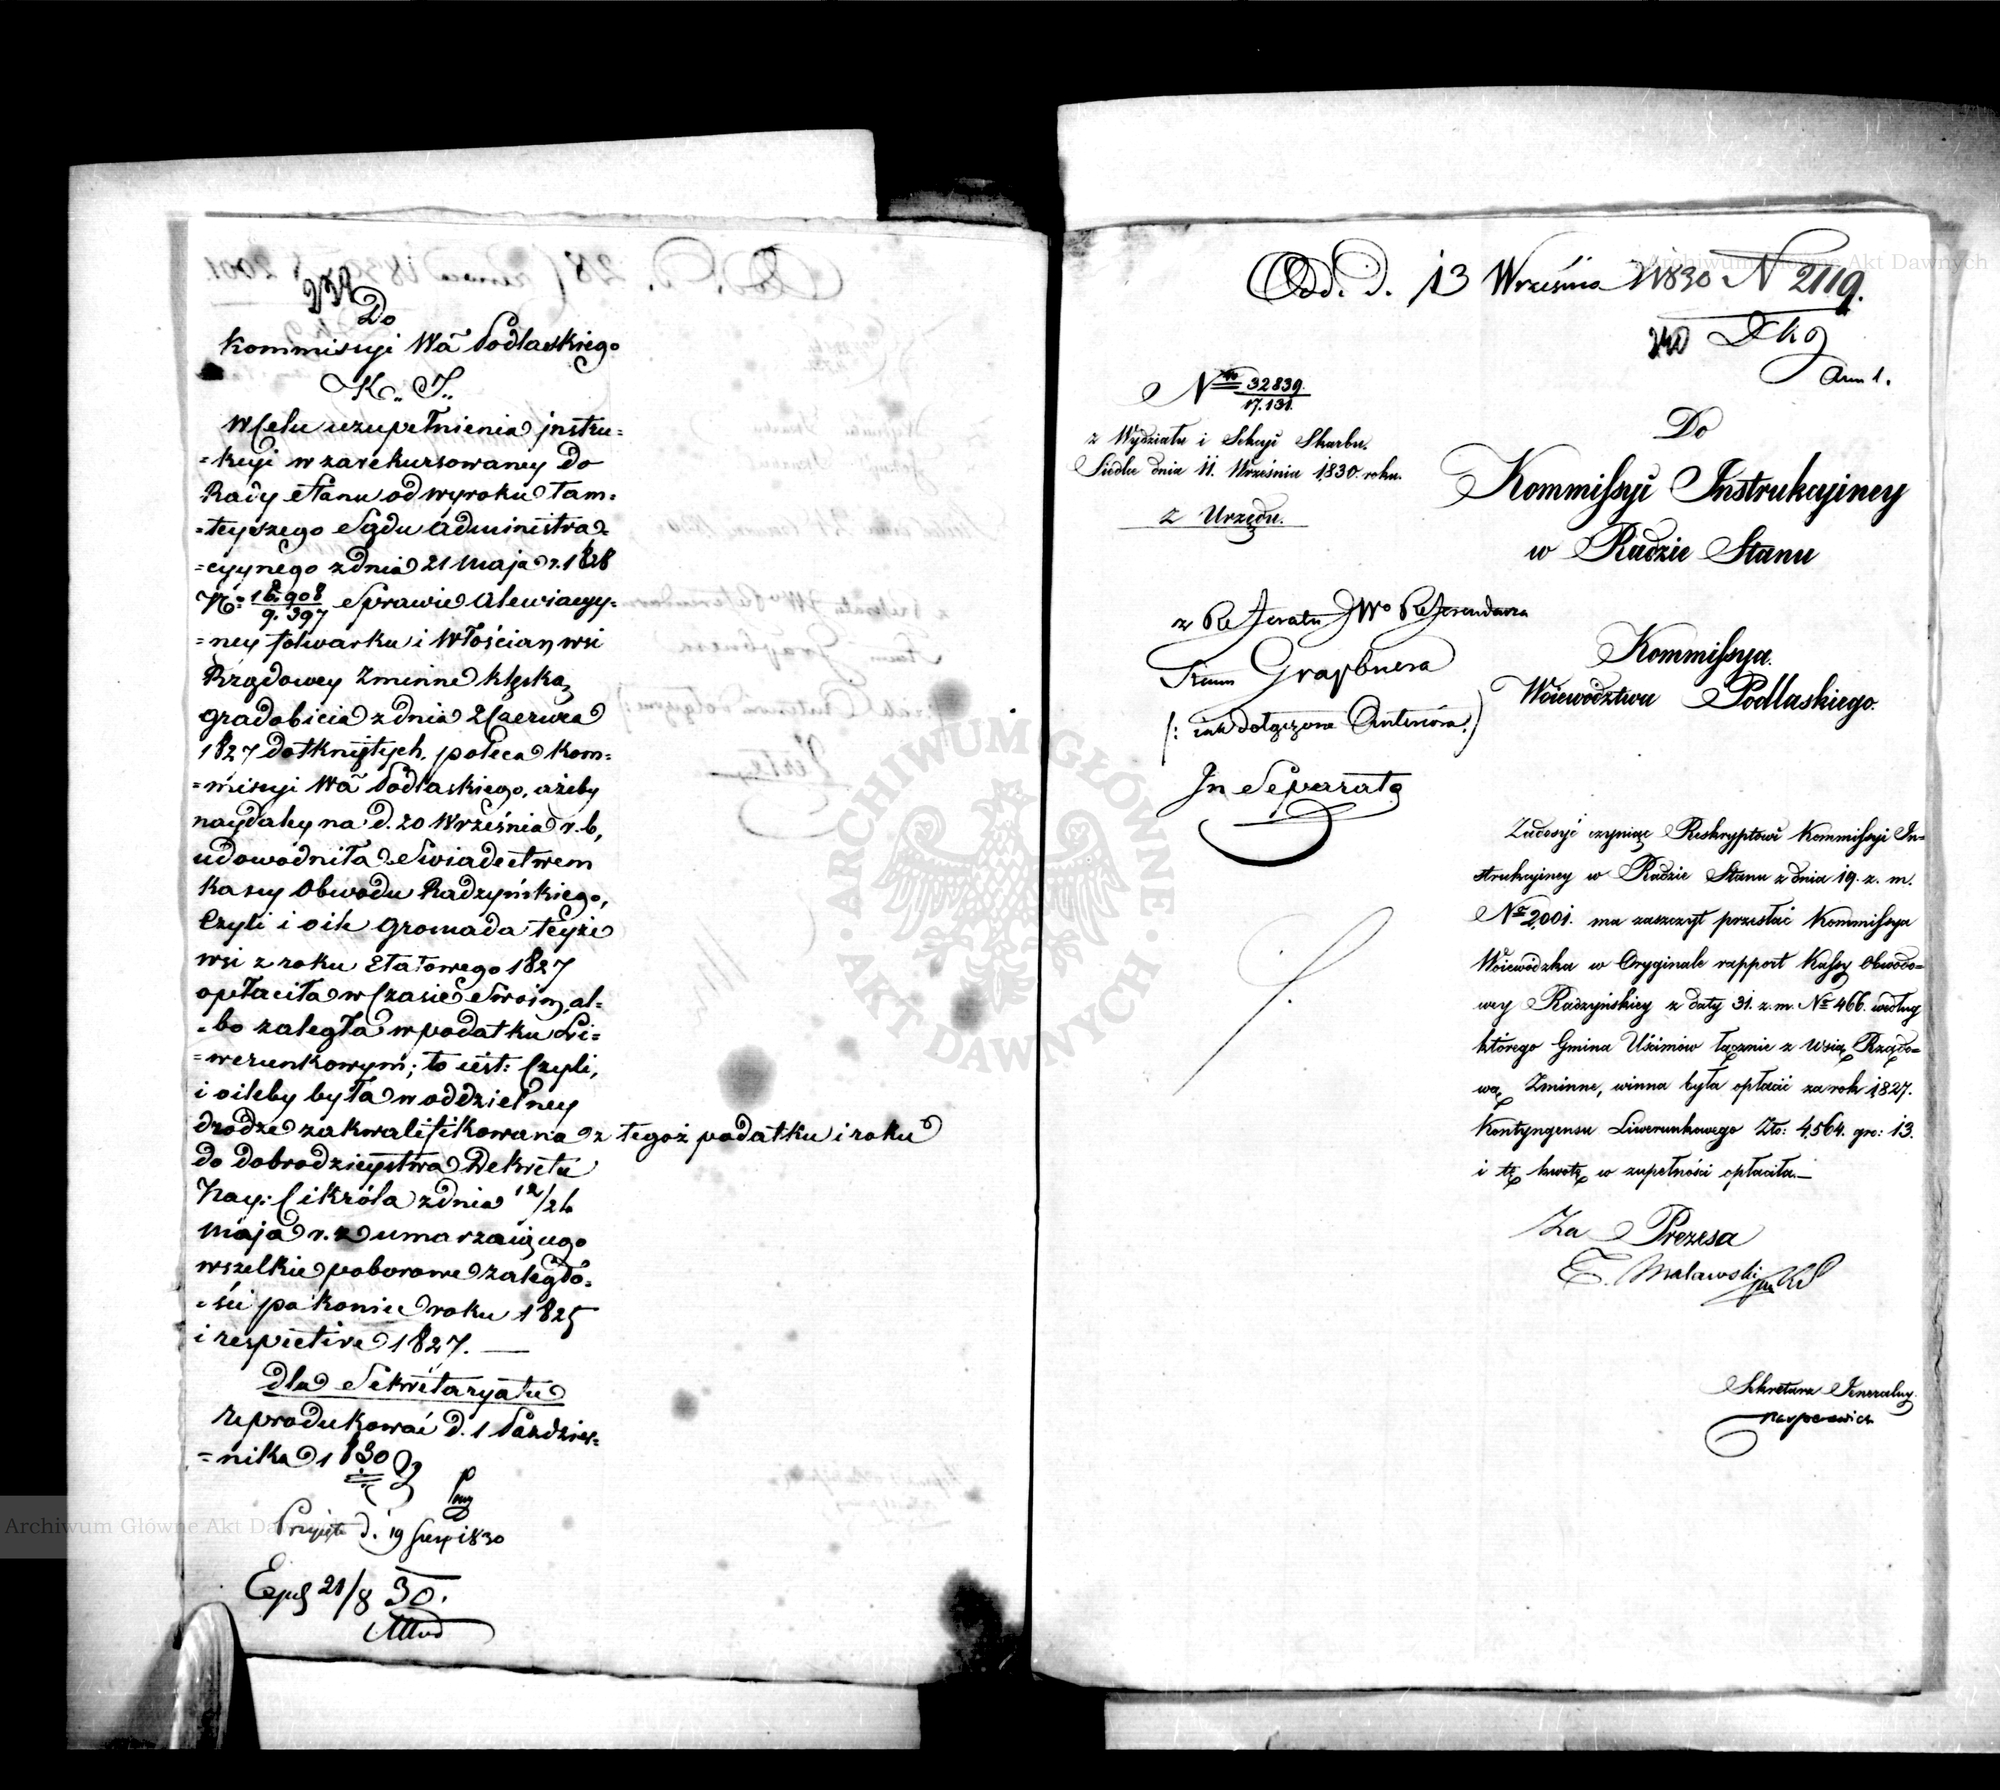 Do
Kommissyi Wa Podlaskiego
K. J.
W Celu uzupełnienia jnstru=
=kcyi w zarekursowaney Do
Rady Stanu od wyroku tam=
=teyszego Sądu administra=
=cyynego z dnia 21 Maja r. 1828
N: 16.908/9.397 Sprawie alewiacyy=
=ney folwarku i Włościan wsi
Rządowey Zminne klęską
gradobicia z dnia 2 Czerwca
1827 dotkniętych, poleca Kom=
=missyi Wa Podlaskiego, ażeby
naydaley na d. 20 Września r. b,
udowodniła Swiadectwem
Kassy Obwodu Radzyńskiego,
Czyli i oile Gromada teyże
wsi z roku Etatowego 1827
opłaciła w Czasie Swoim, al=
=bo zaległa w podatku Li=
=werunkowym; to iest: Czyli,
i oileby była w oddzielney
drodze zakwalifikowana z tegoż podatku i roku
do dobrodzieystwa Dekretu
Nay: C i Króla z dnia 12/24
Maja r. z umarzaiącego
wszelkie poborowe zaległo=
=ści po koniec roku 1825
i respective 1827.
dla Sekretaryatu
reprodukować d. 1 Paździer=
=nika 1830
Przyięto d. 19 Sierp 1830
Exp 21/8 30.
Odd. d. 13 Września 1830 N 2119.
240
Ann 1.
Nro 32839./17.131.
z Wydziału i Sekcyi Skarbu.
Siedlce dnia 11. Września 1830. roku.
Z Urzędu.
z Referatu JWo Referendarza
Stanu Graybnera
/: iak dołączone Anteriora :/
In Separato
Do
Kommissyi Instrukcyiney
w Radzie Stanu
Kommissya
Woiewództwa Podlaskiego.
Zadosyć czyniąc Reskryptowi Kommissyi In=
strukcyiney w Radzie Stanu z dnia 19. z. m.
Nr 2,001. ma zaszczyt przesłać Kommissya
Woiewódzka w Oryginale rapport Kassy Obwodo=
wey Radzyńskiey z daty 31. z. m. Nr 466. według
którego Gmina Uścimów łącznie z Wsią Rządo=
wą Zminne, winna była opłacić za rok 1827.
Kontyngensu Liwerunkowego Złt: 4,564. gro: 13.
i tę kwotę w zupełności opłaciła.—
Za Prezesa
T. Malawski
Sekretarz Jeneralny
ARCHIWUM GŁÓWNE
AKT DAWNYCH
Archiwum Główne Akt Dawnych
Archiwum Główne Akt Dawnych